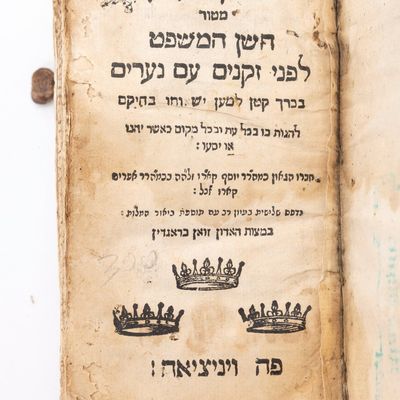 מטור
חשן המשפט
לפני זקנים עם נערים
בכרך קטן למען ישאוהו בחיקם
להגות בו בכל עת ובכל מקום כאשר יחנו
או יסעו :
חברו הגאון כמהרר יוסף קארו זלהה בכמהרר אפרים
קארו זצל :
נדפס שלישית בעיון רב עם תוספת ביאור המלות :
במצות האדון זואן בראגדין
300
פה ויניציאה :